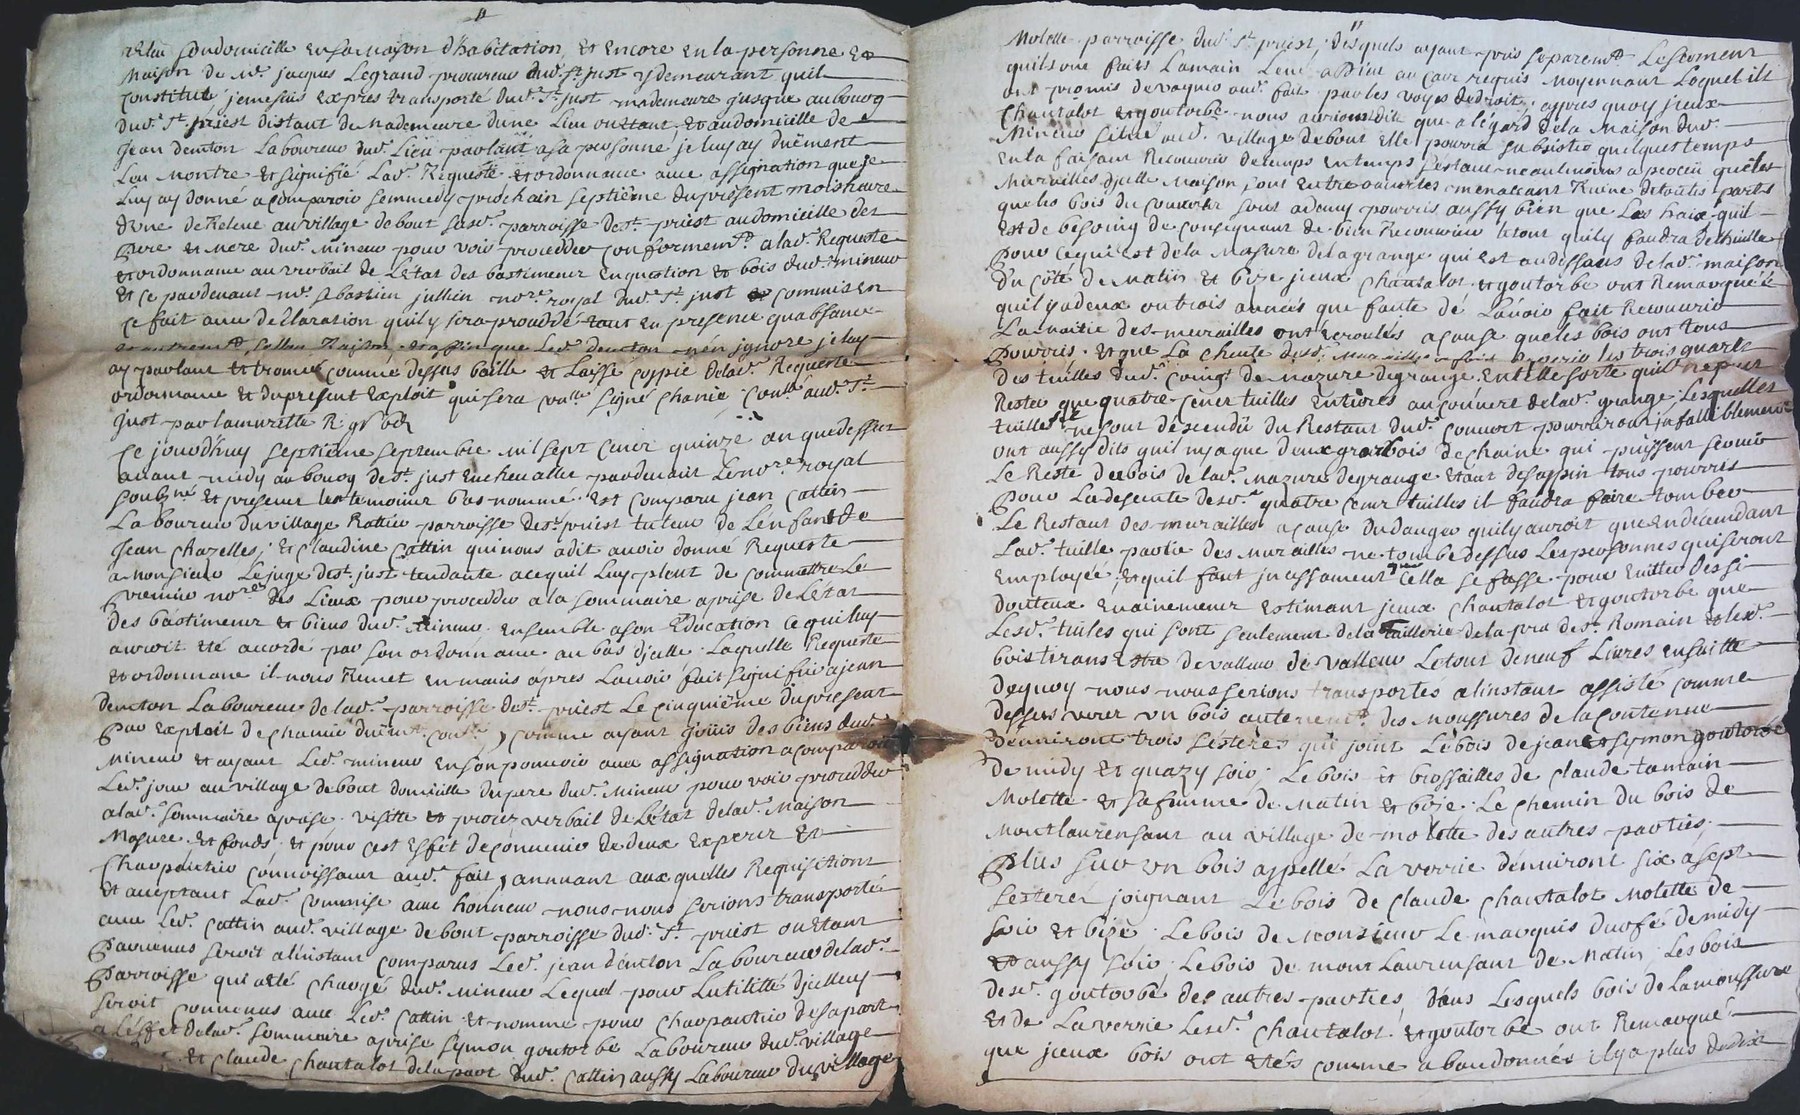 Esleu son domicille en sa maison d'habitation, et encore en la personne et
Maison de Mr. jacques Legrand procureur dud. St. just y demeurant quil
constitue, je me suis expres transporté dud. St. just ma demeure jusque au bourg
dud. St. priest distant de ma demeure d'une Lieu ou etant et au domicille de
Jean denclon Laboureur dud. Lieu parlant a sa personne je luy ay duëment
Leu Montré et signifié Lad. Requeste et ordonnance avec assignation que je
Luy ay donné a comparoir semmedy prochain septiême du present mois heure
d'une de Relevé au village de bout susd. parroisse de St. priest au domicille des
pere et mere dud. Mineur pour voir procedder conformemt. a lad. Requeste
et ordonnance au verbail de L'Etat des bastiments en question et bois dud. mineur
et ce pardevant me. sebastien jullien nore. royal dud. St. just commis en
ce fait avec declaration quil y sera proceddé tant en presence qu'absence
et autremt. sellon Raison et affin que Led. denclon n'en ignore je luy
ay parlant et trouvé comme dessus baillé et Laissé coppie de lad. Requeste
ordonnance et du present exploit qui sera conlle. signé chanié conlle. aud. St.
just par lamurette R.
Ce jourd'huy septiême septembre mil sept cent quinze an que dessus
avant midy au bourg de St. just en chevallet pardevant Le nore. royal
soubzné et presents les temoins bas nommé est comparu jean Cattin
Laboureur du village Rattier parroisse de St. priest tuteur de L'enfant de
Jean chazelles, et claudine Cattin qui nous a dit avoir donné Requeste
a Monsieur Le juge de St. just tendante a ce quil Luy plut de commettre Le
premier nore. des Lieux pour procedder a la sommaire aprise de L'état
des bâstiments et biens dud. Mineur ensemble a son Education ce qui luy
auroit eté accordé par son ordonnance au bas d'jcelle Laquelle Requeste
et ordonnance il nous Remet en mains âpres Lavoir fait signiffié a jean
denclon Laboureur de lad. parroisse de St. priest Le cinquiême du present
par Exploit de chanié duëmt. conlle., comme ayant joüis des biens dud.
Mineur et ayant Led. mineur en son pouvoir avec assignation a comparoir
Led. jour au village de bout domicille du pere dud. Mineur pour voir procedder
a lad. sommaire aprise visitte et procez verbail de L'état de lad. Maison
Masure et fonds et pour cest effet de convenir de deux Experts et
charpentier connoissant aud. fait, annuant aux quelles Requisitions
et aceptant Lad. commise avec honneur nous nous serions transporté
avec Led. cattin aud. village de bout parroisse dud. St. priest ou etant
parvenus seroit a linstant comparus Led. jean denclon Laboureur de lad.
parroisse qui a eté chargé dud. Mineur Lequel pour Lutilitté djcelluy
seroit convenus avec Led. Cattin et nommé pour charpantier de sa part
a Leffet de lad. sommaire aprise symon goutorbe Laboureur dud. village
et claude chantalot de la part dud. Cattin aussy Laboureur du village
Molette parroisse dud. St. priest, desquels ayant pris separemt. Le serment
quils ont faits La main Levé a Dieu au cas requis Moyennant Lequel ils
ont promis de vaquer aud. fait par les voyes de droit, apres quoy jceux
Chantalot et goutorbe nous auroient dit que a l'égard de la Maison dud.
Mineur scitué aud. village de bout Elle pourra subsister quelques temps
en la faisant Recouvrir de temps en temps
Murailles djcelle Maison sont entre ouvertes menassant Ruine de toutes parts
que les bois du couvert sont a demy pourris, aussy bien que Les haix quil
est de besoing de
pour ce qui est de la Masure de la grange qui est au dessous de lad. maison
du côté de Matin et bize jceux chantalot et goutorbe ont Remarqué
quil y a deux ou trois années que faute de Lavoir fait Recouvrir
La moitié des murailles ont ecroulés a cause que les bois ont tous
pourris et que La cheute desd. Murailles a fait perir les trois quarts
des tuilles dud. coing de mazure de grange en telle sorte quil ne peut
Rester que quatre cent tuilles entieres au couvert de lad. grange Lesquelles
tuilles sil ne sont descendü du Restant dud. couvert pourriront jnfailliblement
ont aussy dits quil ny a que deux gros bois de chaine qui puissent servir
Le Reste des bois de lad. mazure de grange etant de sappin tous pourris
pour La descente desd. quatre cent tuilles il faudra faire tomber
Le Restant des murailles a cause du danger quil y auroit que en décendant
Lad. tuille partie des Murailles ne tombe dessus Les personnes qui seront
Employée, et quil faut jncessament que cella se fasse pour Eviter des si
douteux evainements estimant jceux chantalot et goutorbe que
Lesd. tuiles qui sont seulement de la tuillerie de la pra de St. Romain et lesd.
bois tirans de valleur de valleur Le tout de neuf Livres ensuitte
dequoy nous nous serions transportés a linstant assisté comme
dessus vers un bois autenent. des Moussures de la contenue
denviront trois sesterés qui joint Le bois de jean et symon goutorbe
de midy et quazy soir, Le bois et brossailles de claude tamain
Molette et sa femme de Matin et bize Le chemin du bois de
Montlaurensant au village de molette des autres parties,
plus sur un bois appellé La verrie d'environt six a sept
sesterés joignant Le bois de claude chantalot Molette de
soir et bize Le bois de Monsieur Le marquis durfé de midy
et aussy soir, Le bois de mont Laurensant de Matin, Les bois
desd. goutorbe des autres parties, dans Lesquels bois de la moussure
et de La verrie Lesd. chantalot et goutorbe ont Remarqué
que jceux bois ont etés comme abandonnés il y a plus de dix